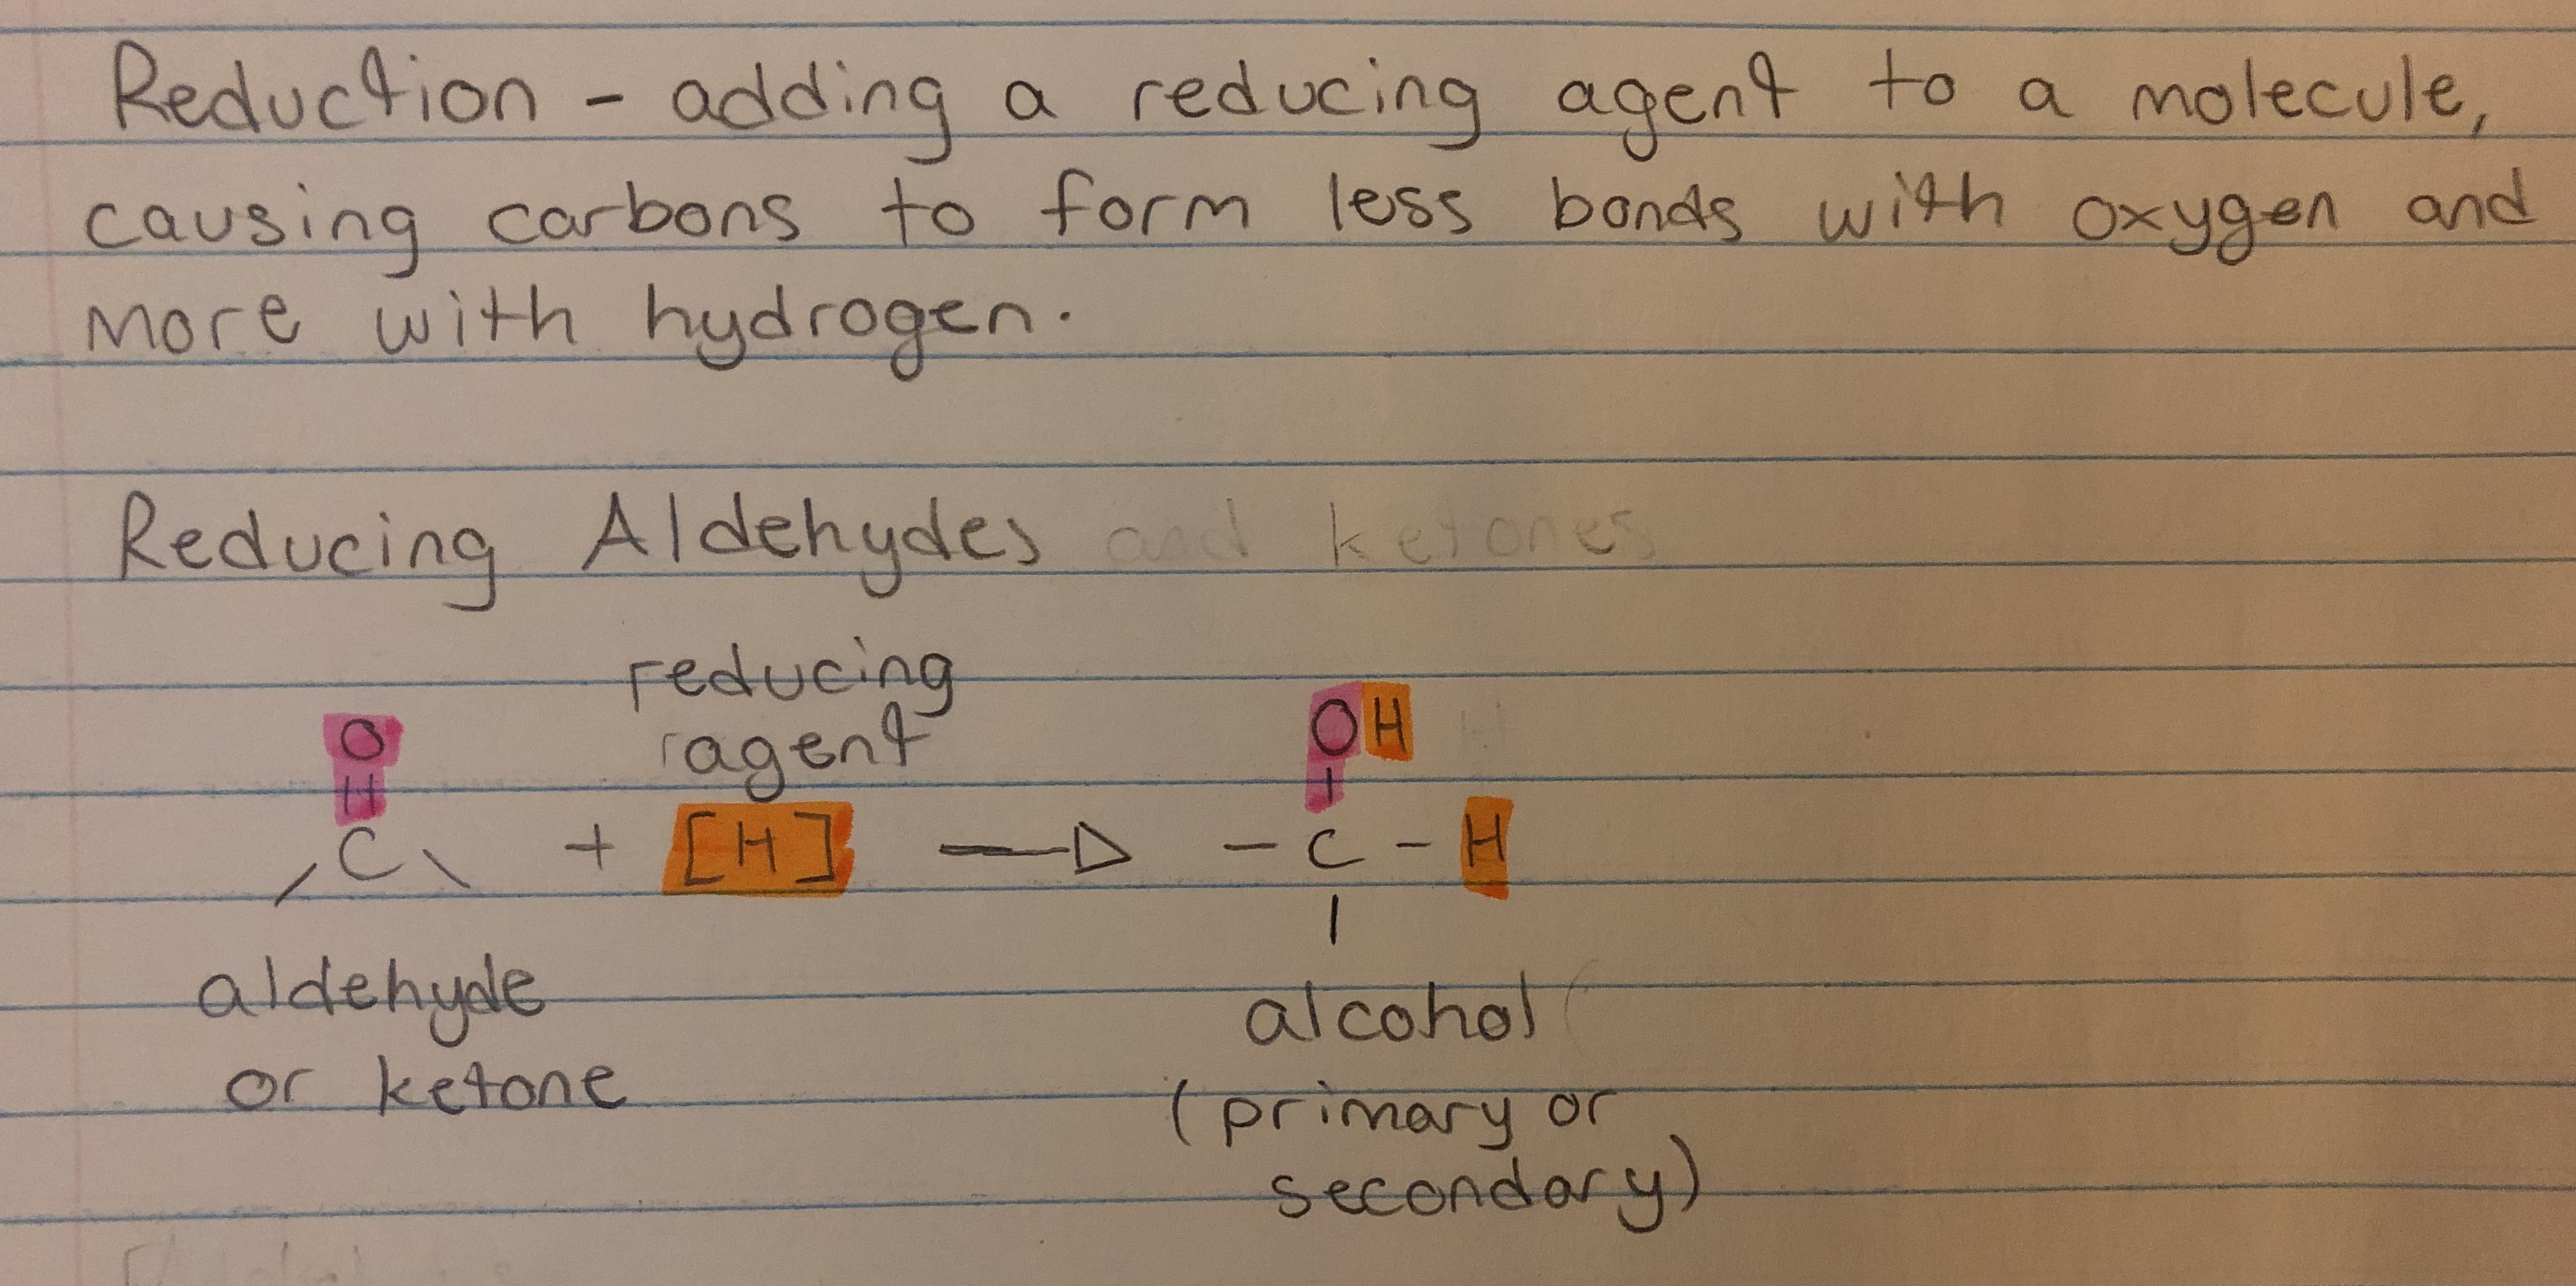 Reduction - adding a reducing agent to a molecule,
causing carbons to form less bonds with oxygen and
more with hydrogen.
Reducing Aldehydes and ketones
reducing
agent
O
C + [H] → - C - H
OH
aldehyde
or ketone
alcohol
(primary or
secondary)